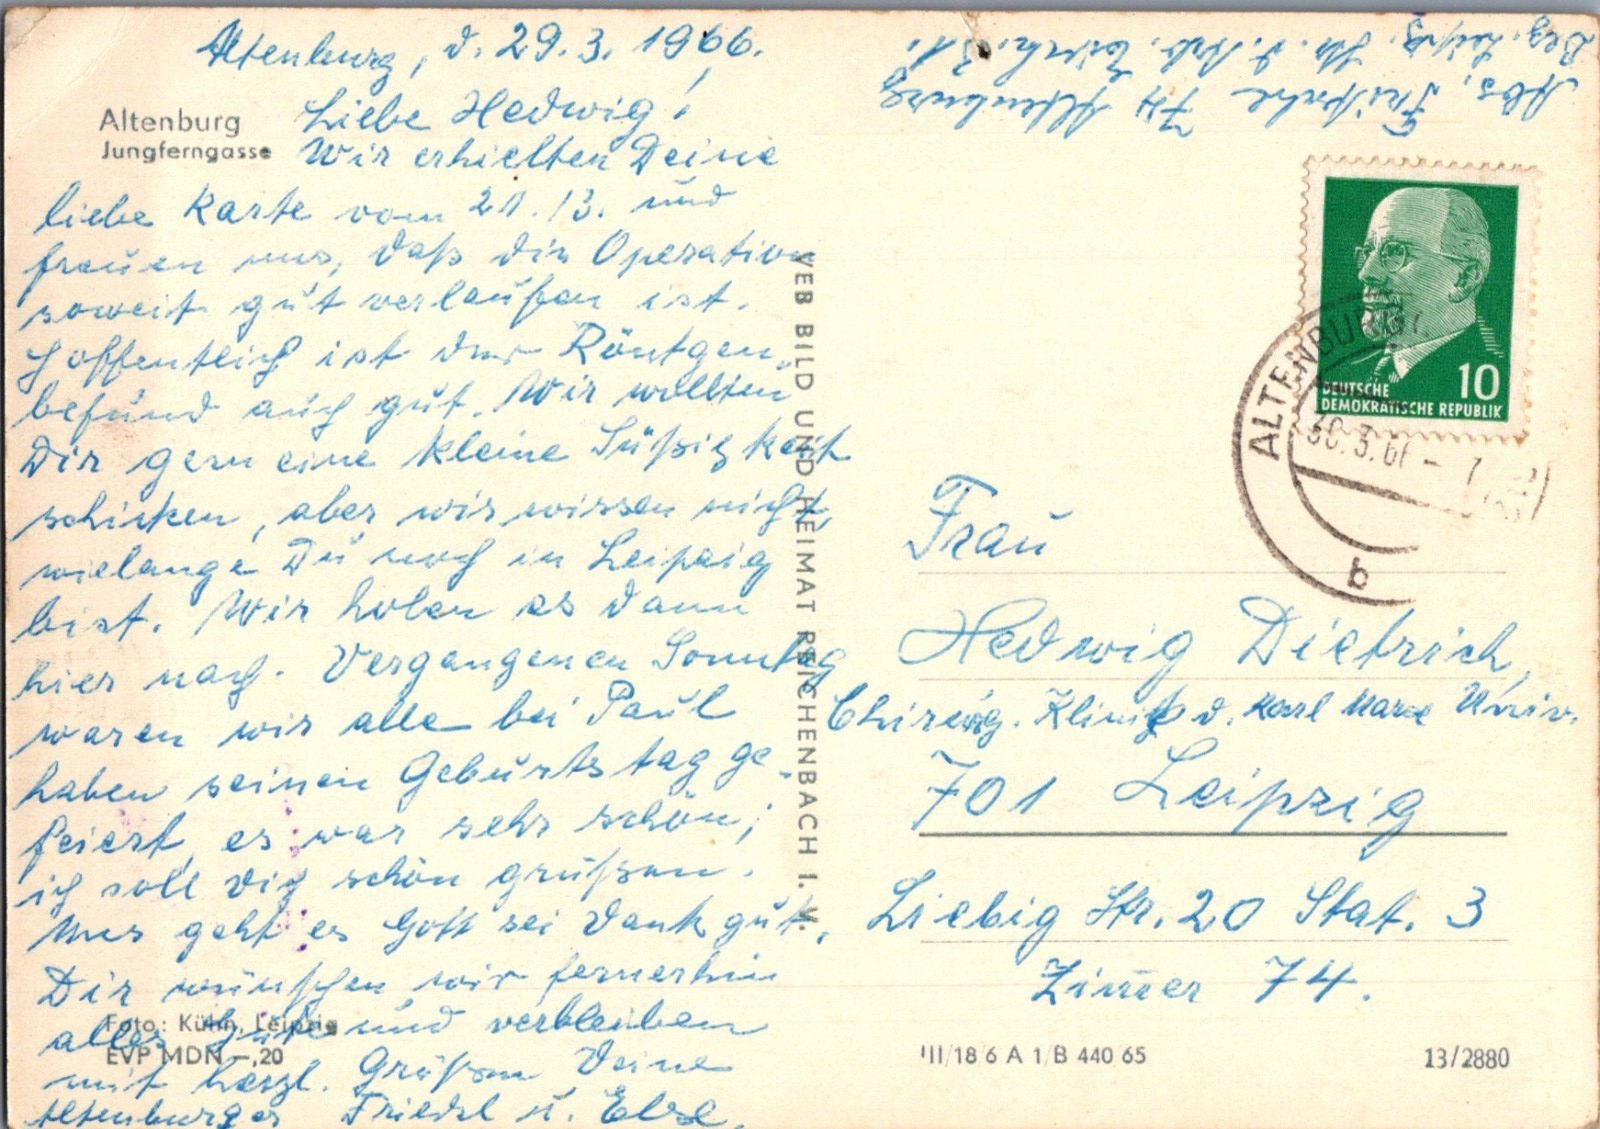 Altenburg, d. 29.3.1966.
Altenburg
Jungferngasse
Liebe Hedwig!
Wir erhielten Deine
liebe Karte vom 21./3. und
freuen uns, daß die Operation
soweit gut verlaufen ist.
Hoffentlich ist der Röntgen-
befund auch gut. Wir wollten
Dir gern eine kleine Süßigkeit
schicken, aber wir wissen nicht,
wielange Du noch in Leipzig
bist. Wir holen es dann
hier nach. Vergangenen Sonntag
waren wir alle bei Paul
haben seinen Geburtstag ge-
feiert, es war sehr schön;
ich soll Dich schön grüßen.
Uns geht es Gott sei Dank gut.
Dir wünschen wir fernerhin
alles Gute und verbleiben
mit herzl. Grüßen Deine
Altenburger Friedel u. Else.
Foto: Kühn, Leipzig
EVP MDN -,20
VEB BILD UND HEIMAT REICHENBACH I. V.
Abs. Fritzsche 74 Altenburg
Bez. Leipzig. Str. d.
DEUTSCHE
DEMOKRATISCHE REPUBLIK
10
ALTENBURG
30.3.66 - 7
b
Frau
Hedwig Dietrich,
Chirurg. Klinik d. Karl Marx Univ.
701 Leipzig
Liebig Str. 20 Stat. 3
Zimmer 74.
III/18/6 A 1/B 440 65
13/2880